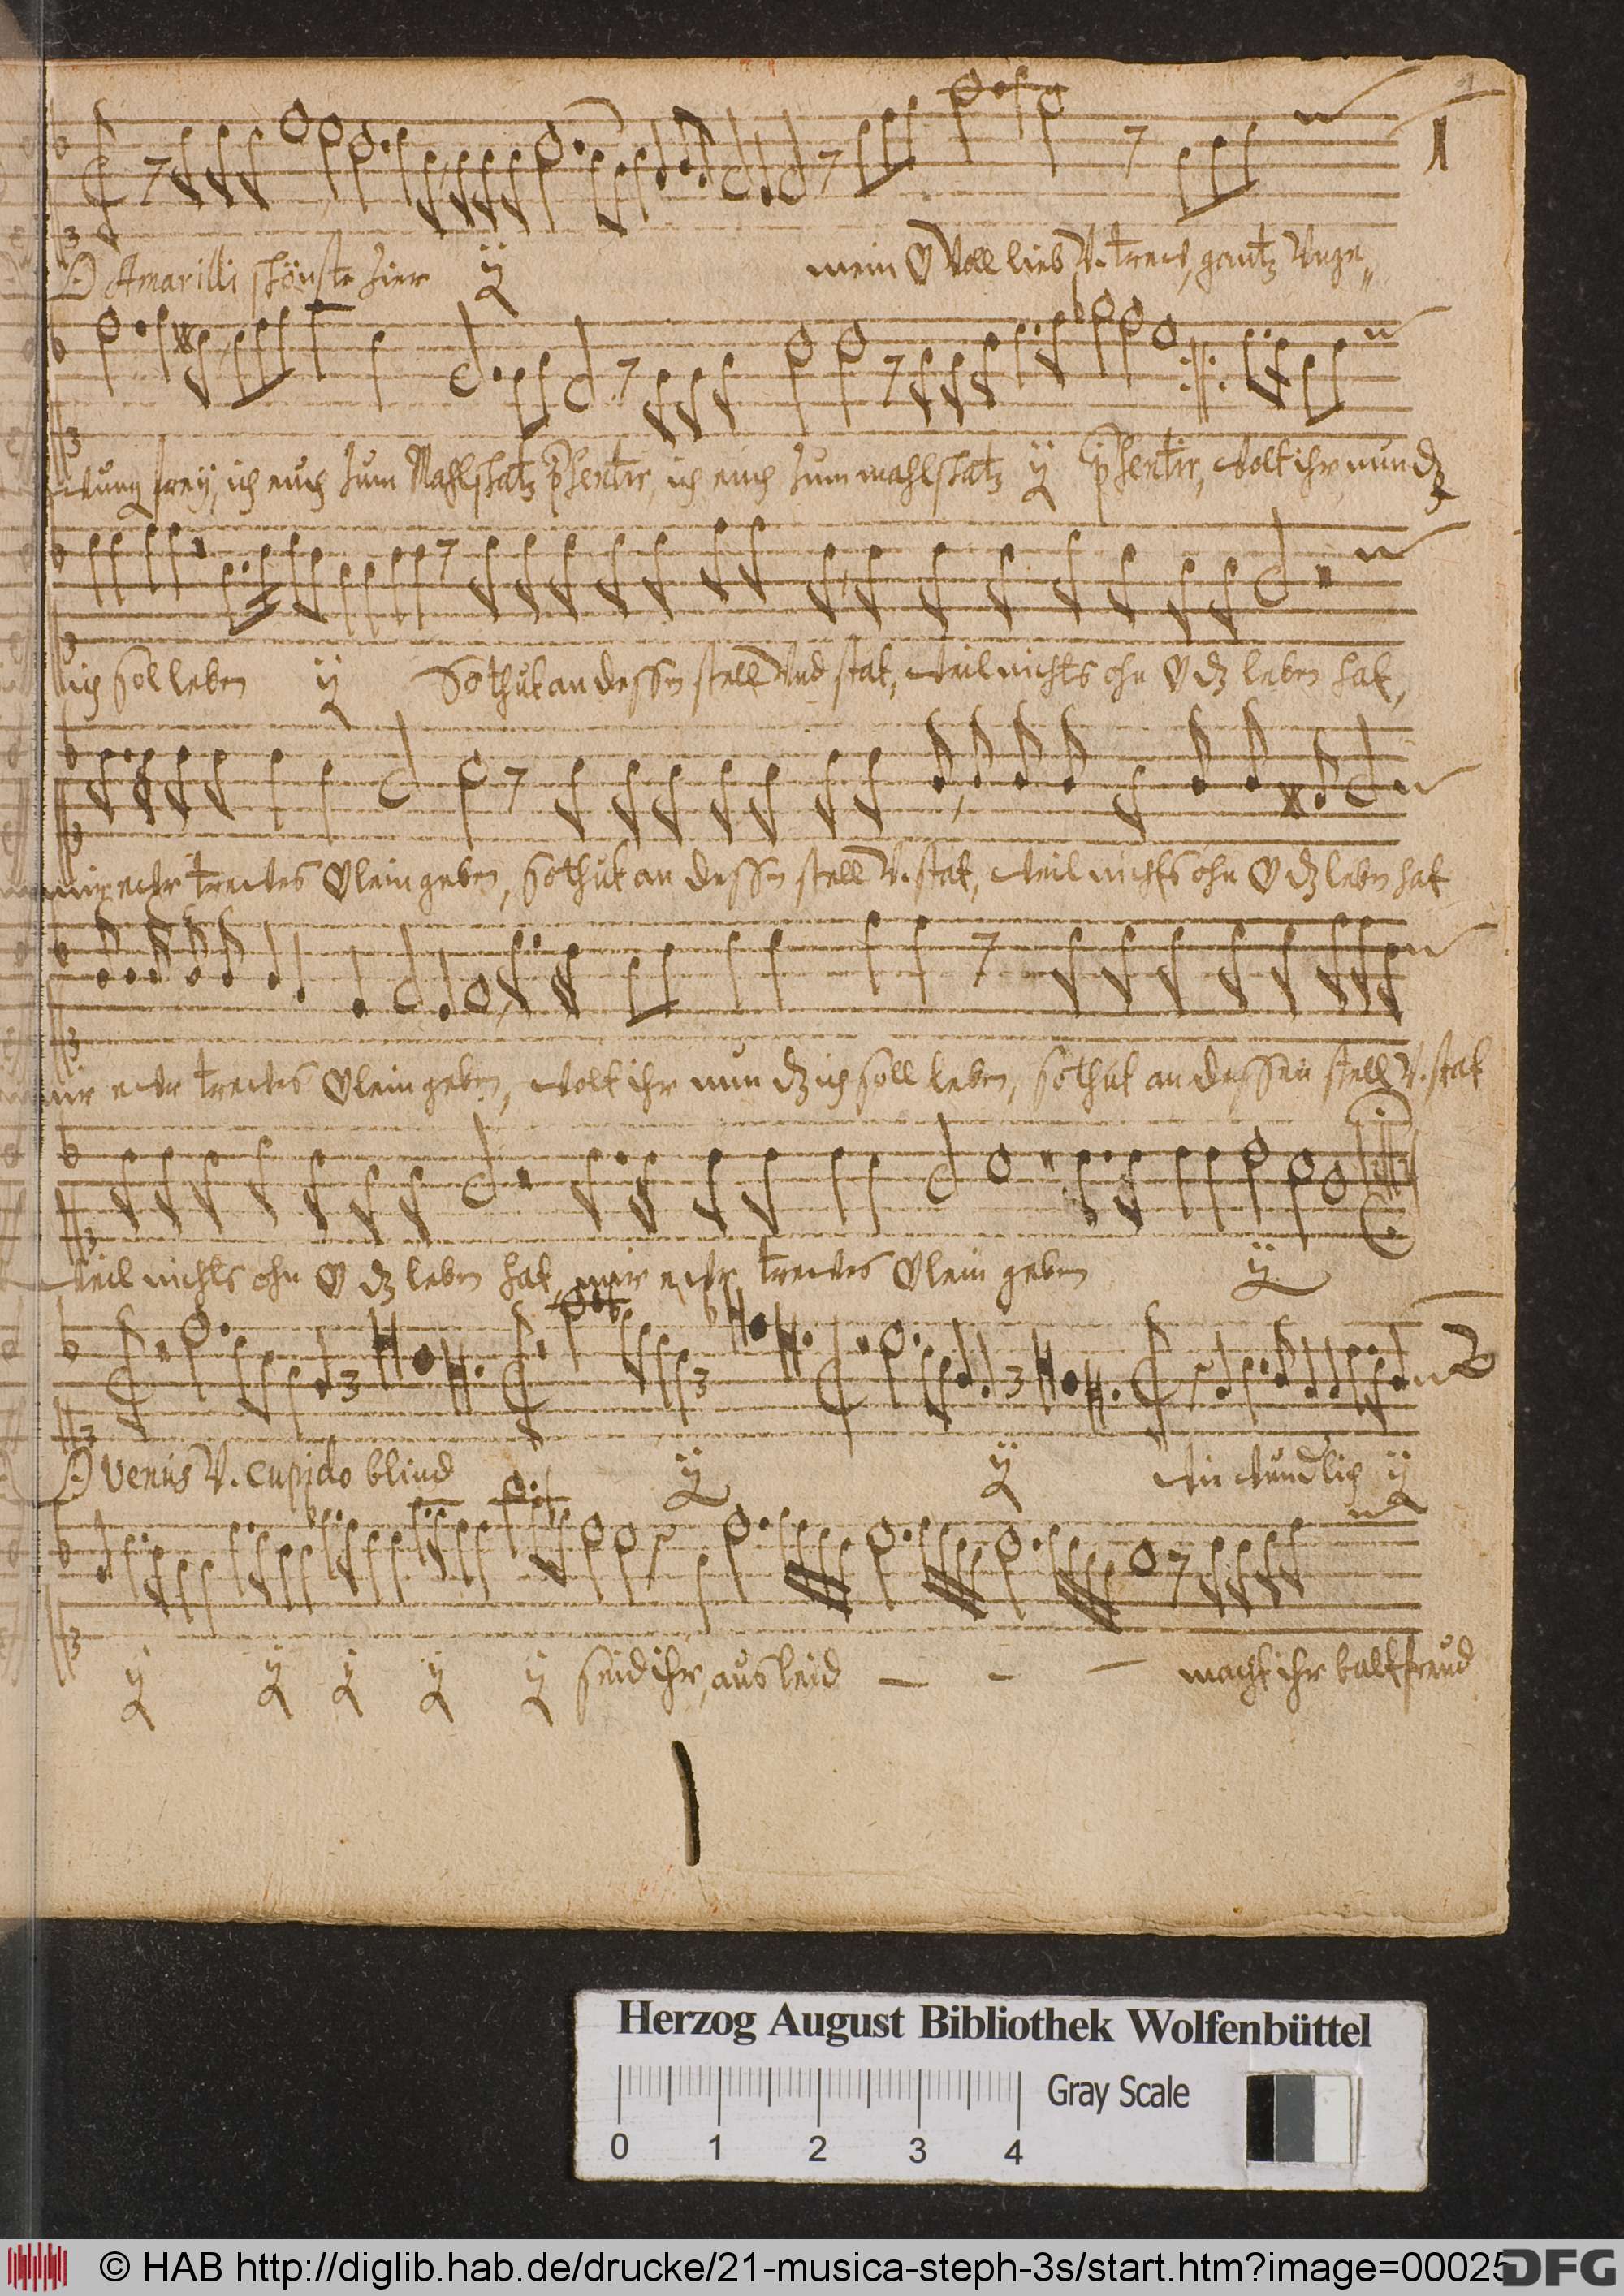 1
O Amarilli schönste Zier ÿ mein ♡ Voll lieb V. trew, gantz Unge„
wung frey, ich euch zum Mahlschatz p̄sentir, ich euch zum mahlschatz ÿ p̄sentir, Wolt ihr nun dz
ich sol leben ÿ So thut an dessn stell Und stat, Weil nichts ohn ♡ dz leben hat,
mir ewr trewes ♡lein geben, so thut an dessn stell V. stat, Weil nichts ohn ♡ dz lebn hat
mir ewr trewes ♡lein geben, Wolt ihr nun dz ich soll leben, so thut an dessen stell V. stat
Weil nichts ohn ♡ dz leben hat, mir ewr trewes ♡lein geben ÿ
2
O Venus V. Cupido blind ÿ ÿ Wie Wündlich ÿ
ÿ ÿ ÿ ÿ ÿ seid ihr, aus leid — — — macht ihr balt freud
Herzog August Bibliothek Wolfenbüttel
Gray Scale
0 1 2 3 4
© HAB http://diglib.hab.de/drucke/21-musica-steph-3s/start.htm?image=00025
DFG